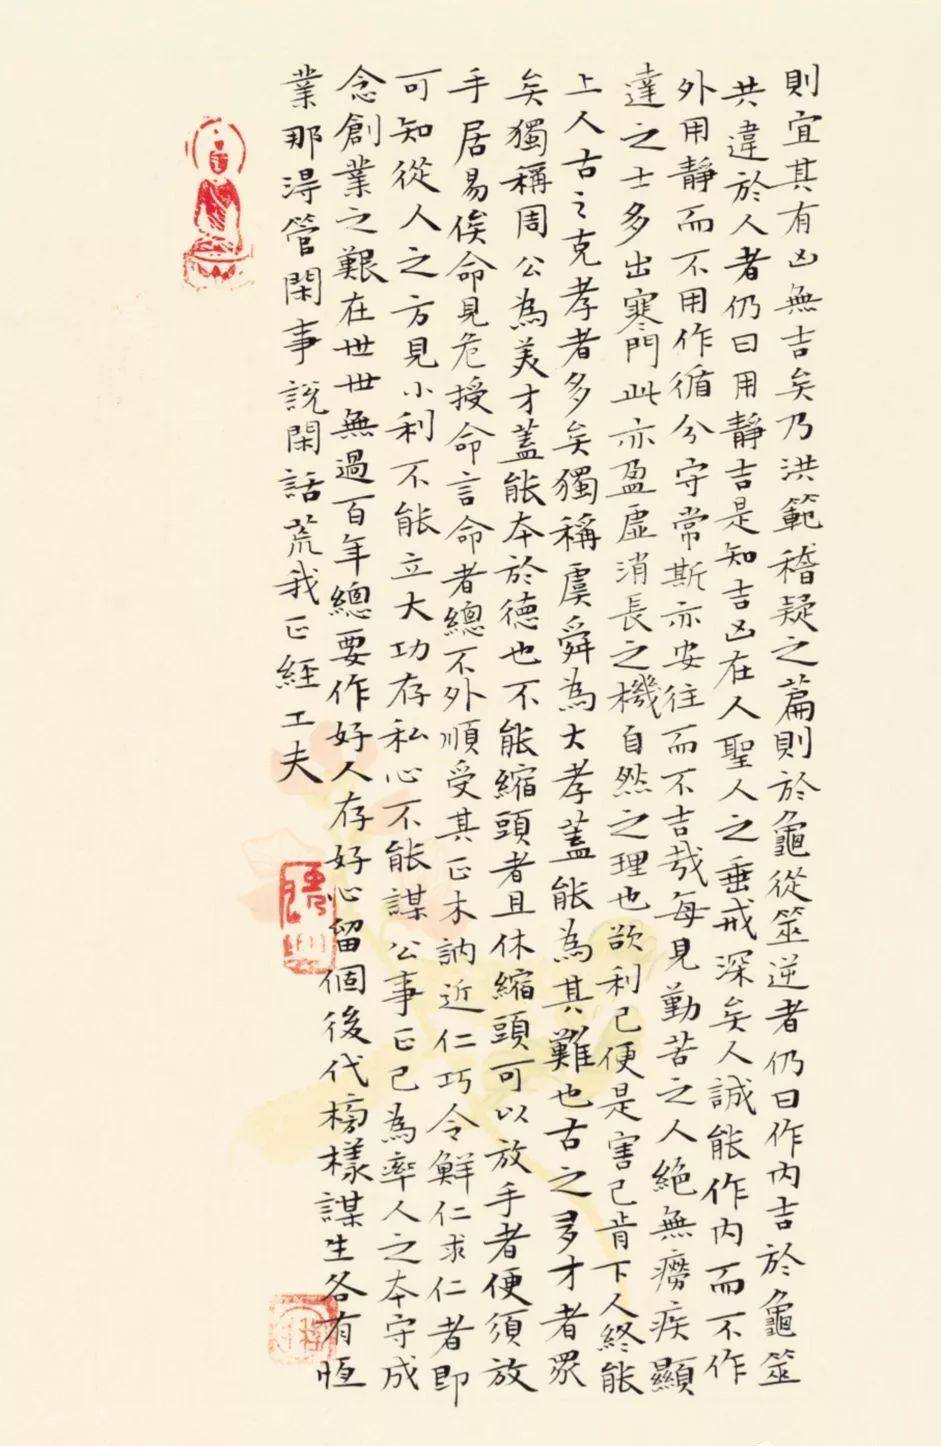 則宜其有凶無吉矣乃洪範稽疑之篇則於龜從筮逆者仍曰作內吉於龜筮
共違於人者仍曰用靜吉是知吉凶在人聖人之垂戒深矣人誠能作內而不作
外用靜而不用作循分守常斯亦安往而不吉哉每見勤苦之人絕無癆疾顯
達之士多出寒門此亦盈虛消長之機自然之理也欲利己便是害己肯下人終能
上人古之克孝者多矣獨稱虞舜為大孝蓋能為其難也古之多才者眾
矣獨稱周公為美才蓋能本於德也不能縮頭者且休縮頭可以放手者便須放
手居易俟命見危授命言命者總不外順受其正木訥近仁巧令鮮仁求仁者即
可知從人之方見小利不能立大功存私心不能謀公事正己為率人之本守成
念創業之艱在世世無過百年總要作好人存好心留個後代榜樣謀生各有恆
業那得管閑事說閑話荒我正經工夫